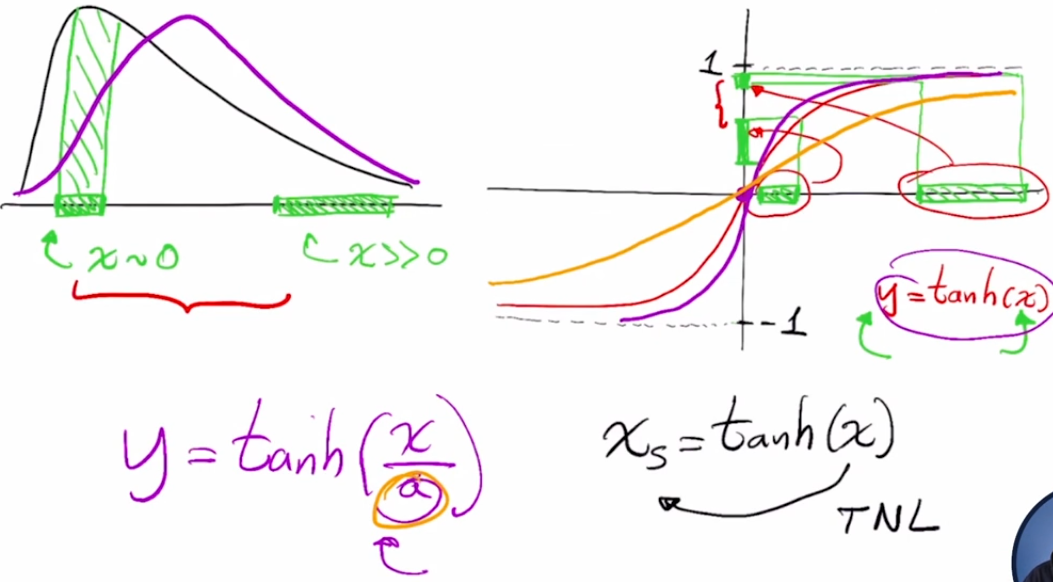 1
x~0
x>>0
y=tanh(x)
-1
y=tanh(x/a)
xₛ=tanh(x)
TNL